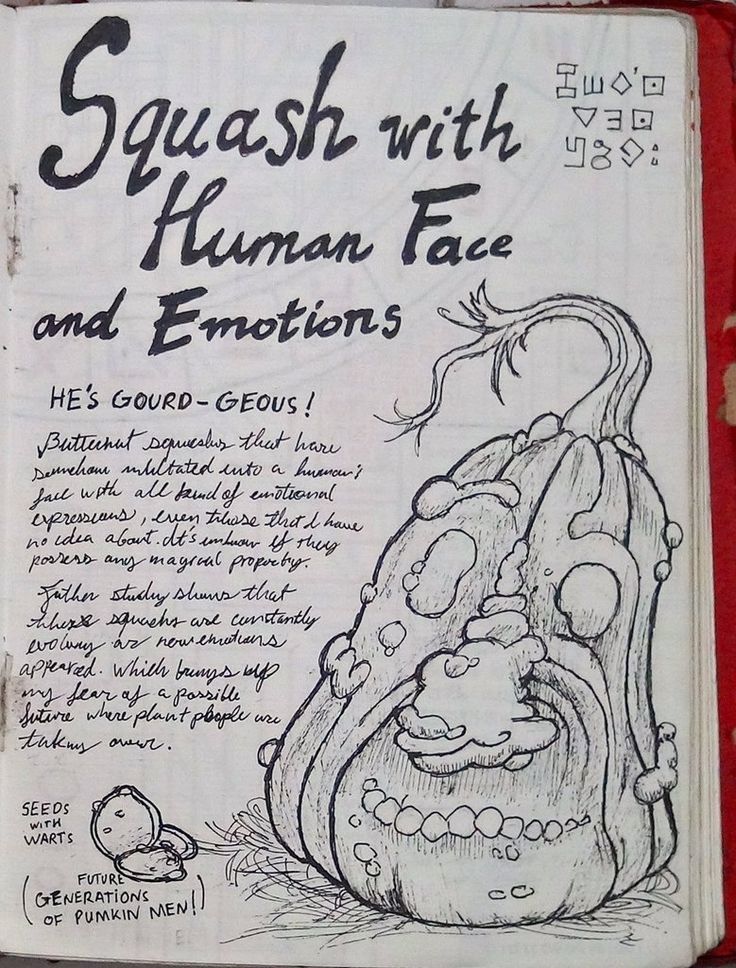 Squash with
Human Face
and Emotions
HE'S GOURD-GEOUS!
Butternut squashes that have
somehow mutated into a human's
face with all kind of emotional
expressions, even those that I have
no idea about. It's unknow if they
possess any magical property.
Futher study shows that
these squashs are constantly
evolving as new emotions
appeared. Which brings up
my fear of a possible
future where plant people are
taking over.
SEEDS
WITH
WARTS
(FUTURE
GENERATIONS
OF PUMKIN MEN!)